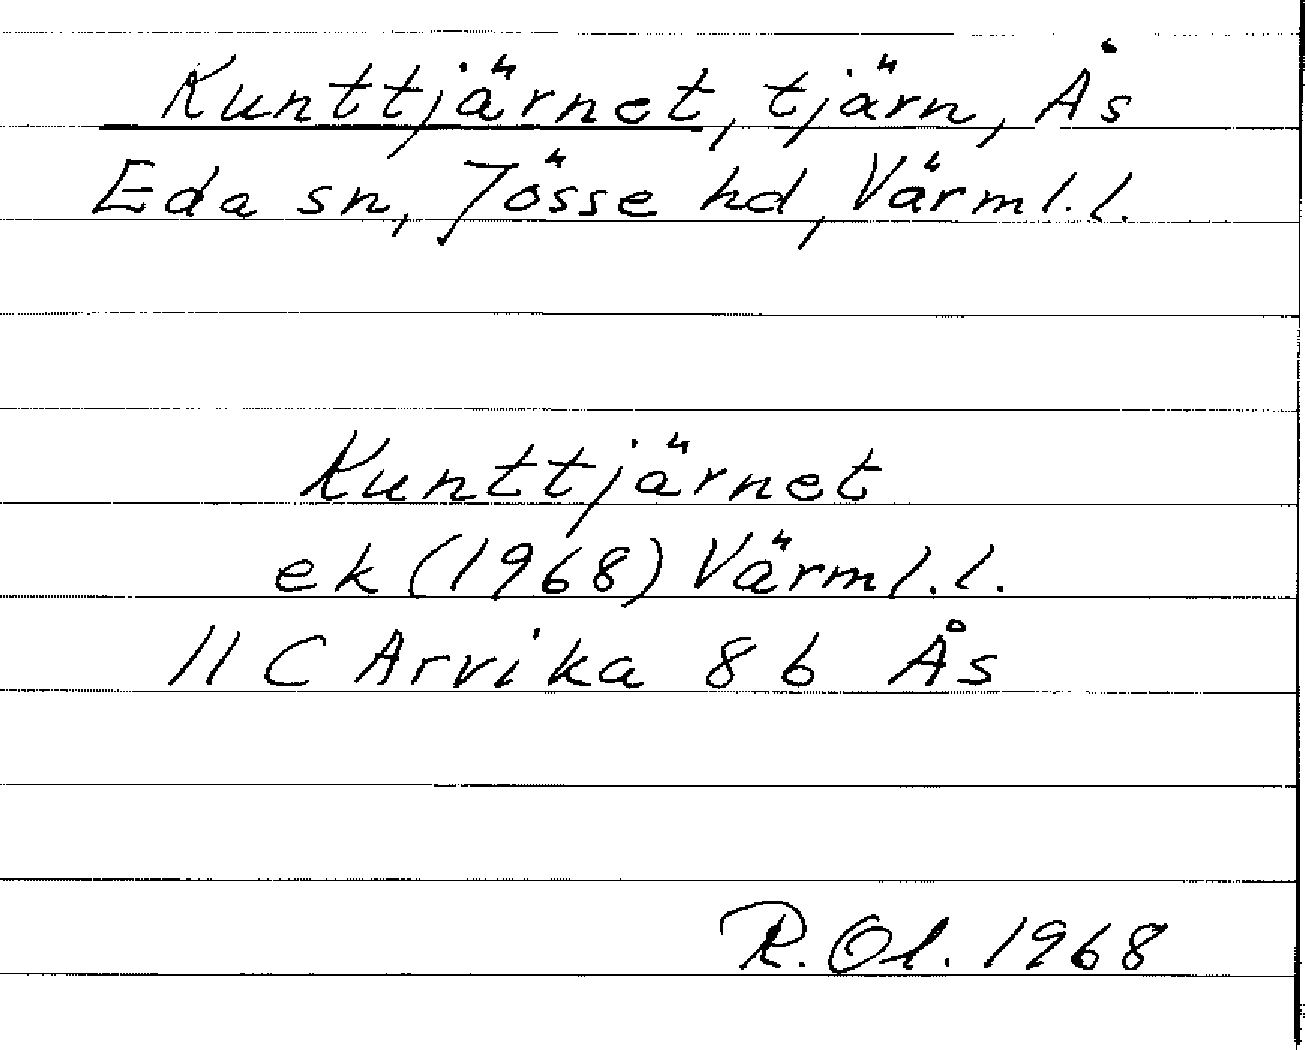 Kunttjärnet, tjärn, Ås
Eda sn, Jösse hd, Värml.l.
Kunttjärnet
ek (1968) Värml.l.
11 C Arvika 8 b Ås
R. Ol. 1968